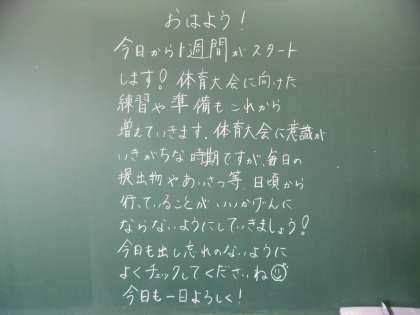 おはよう!
今日から1週間がスタート
します!体育大会に向けた
練習や準備もこれから
増えていきます.体育大会に意識が
いきがちな時期ですが、毎日の
提出物やあいさつ等、日頃から
行っていることがいいかげんに
ならないようにしていきましょう!
今日も出し忘れのないように
よくチェックしてくださいね☺
今日も一日よろしく!